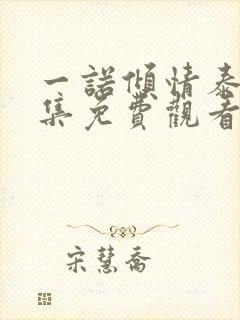 一諾傾情泰
集免費觀看
宋慧喬